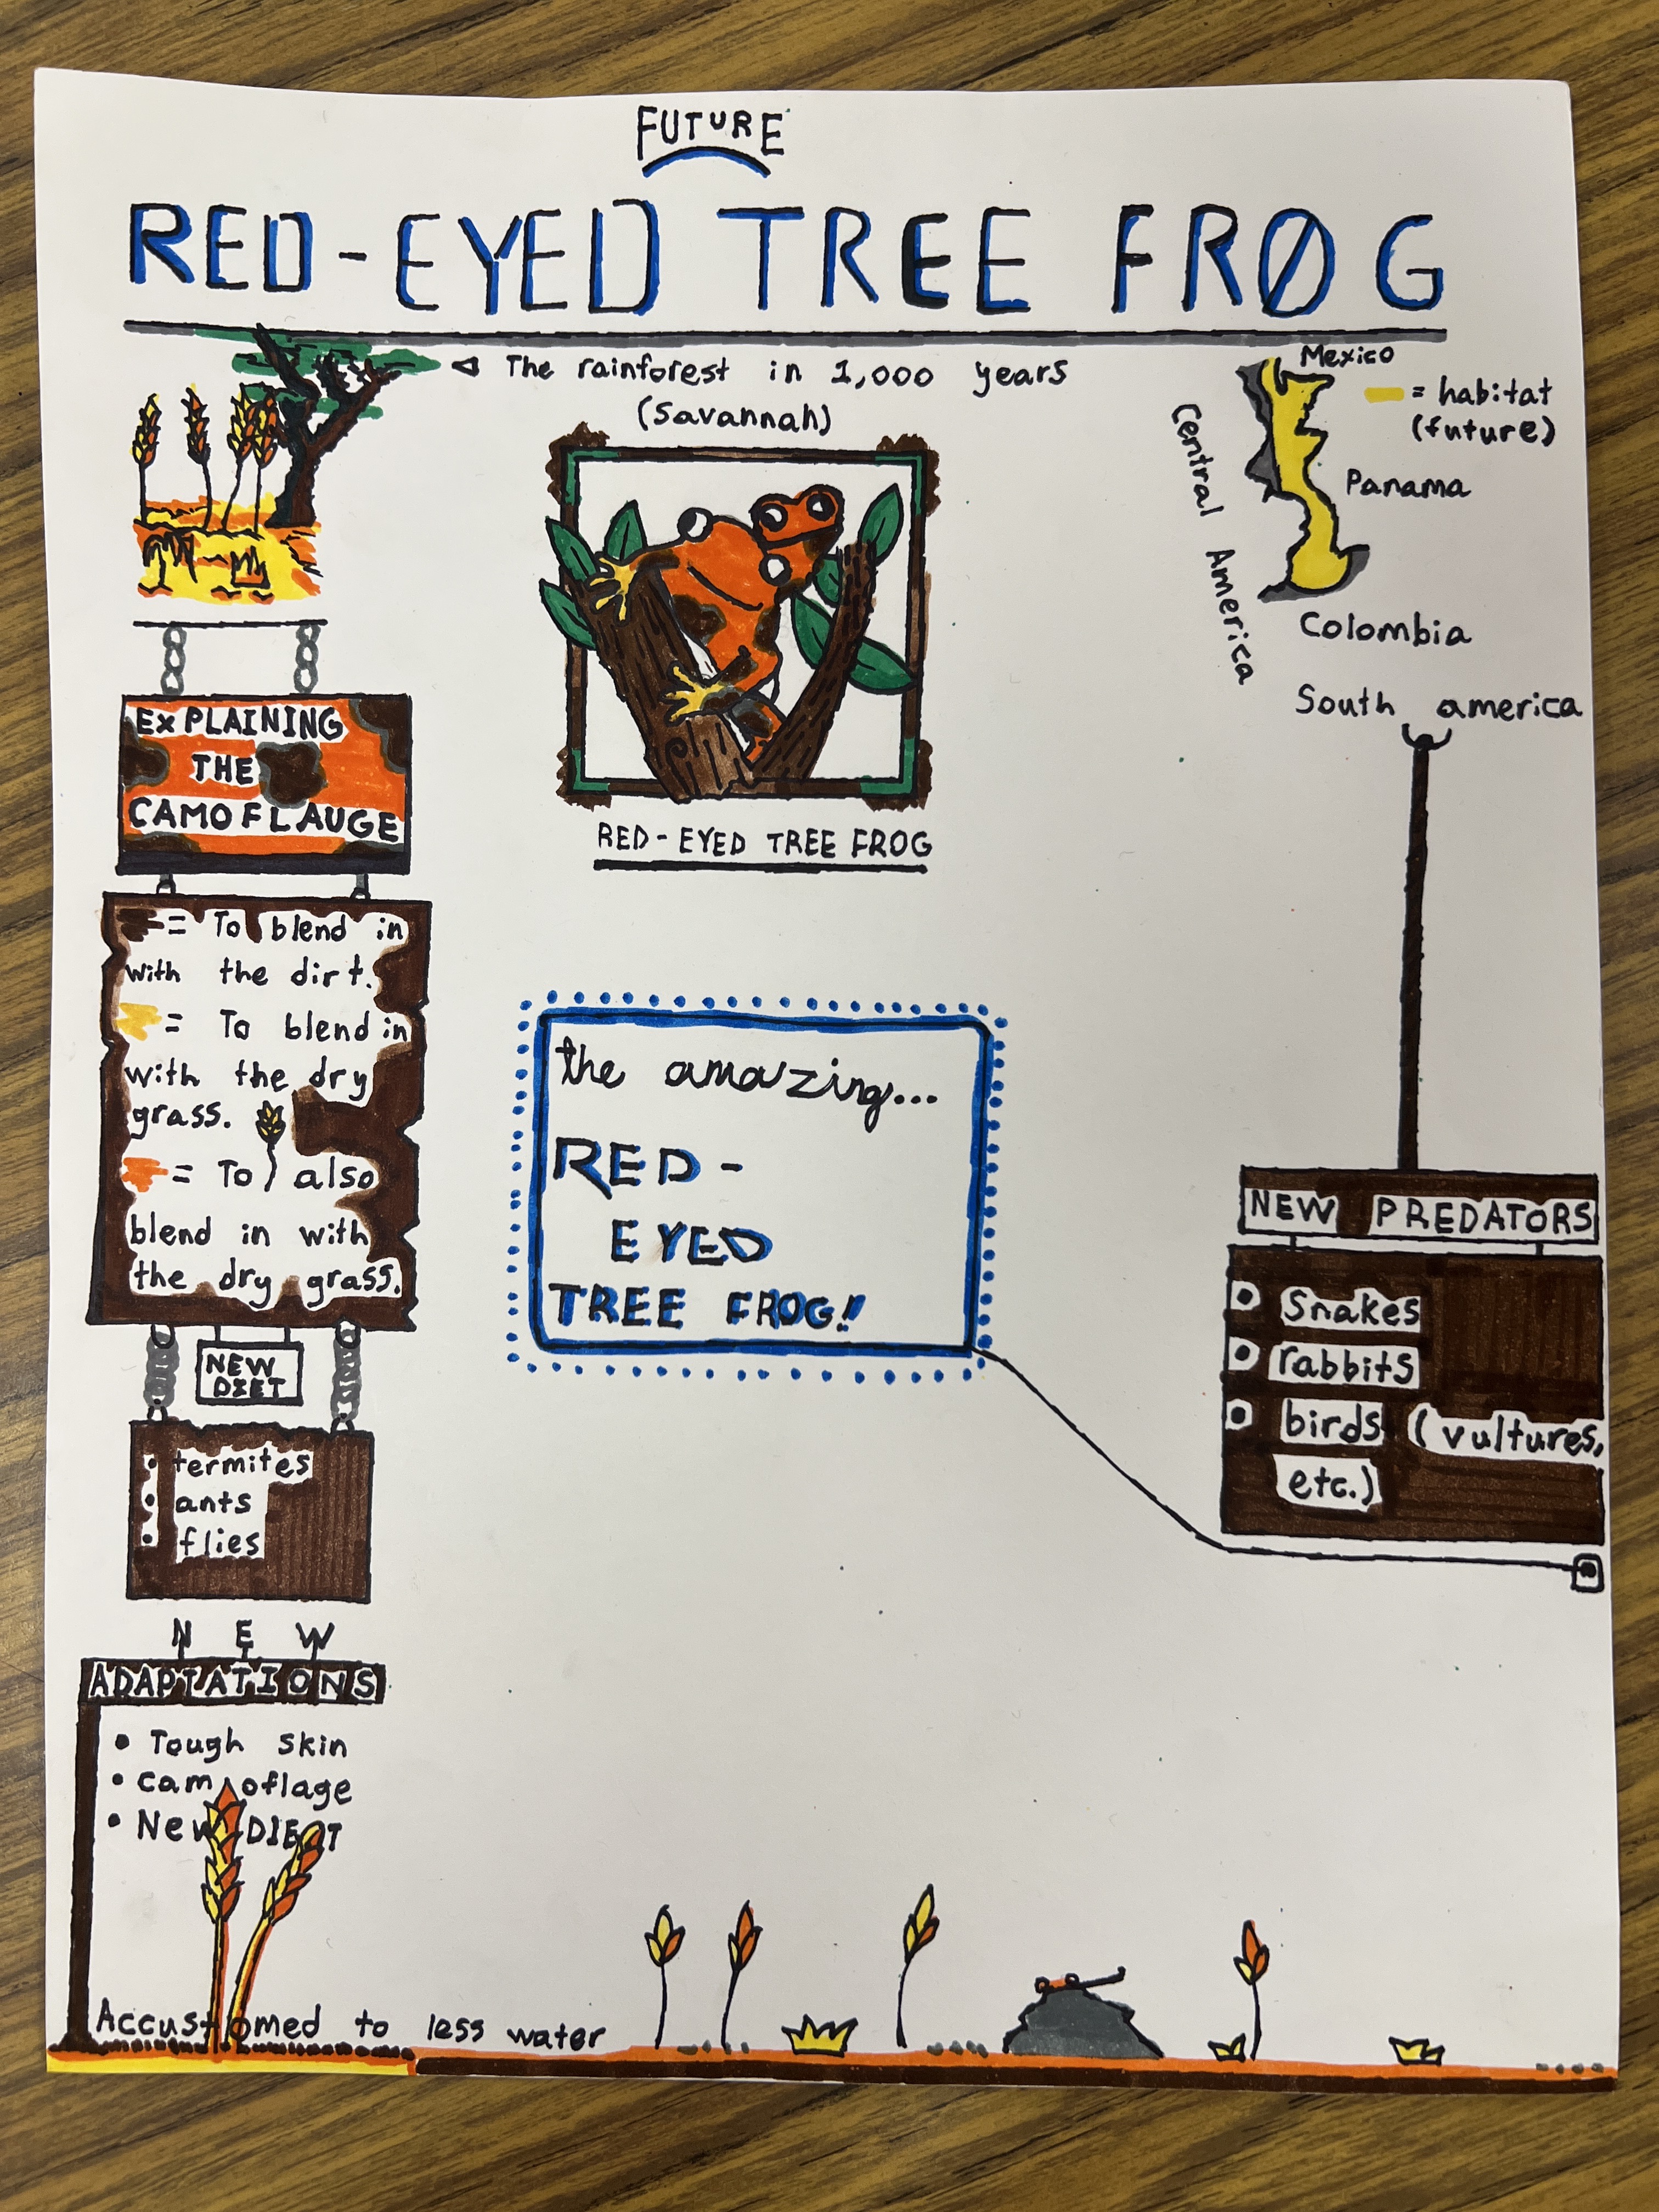 FUTURE
RED-EYED TREE FRØG
◁ The rainforest in 1,000 years
(Savannah)
Mexico
= habitat
(future)
Central America
Panama
Colombia
South america
EXPLAINING
THE
CAMOFLAUGE
= To blend in
with the dirt.
= To blend in
with the dry
grass.
= To also
blend in with
the dry grass.
NEW
DIET
• termites
• ants
• flies
NEW
ADAPTATIONS
• Tough skin
• camoflage
• New DIET
Accustomed to less water
RED-EYED TREE FROG
the amazing...
RED-
EYED
TREE FROG!
NEW PREDATORS
• Snakes
• rabbits
• birds (vultures,
etc.)